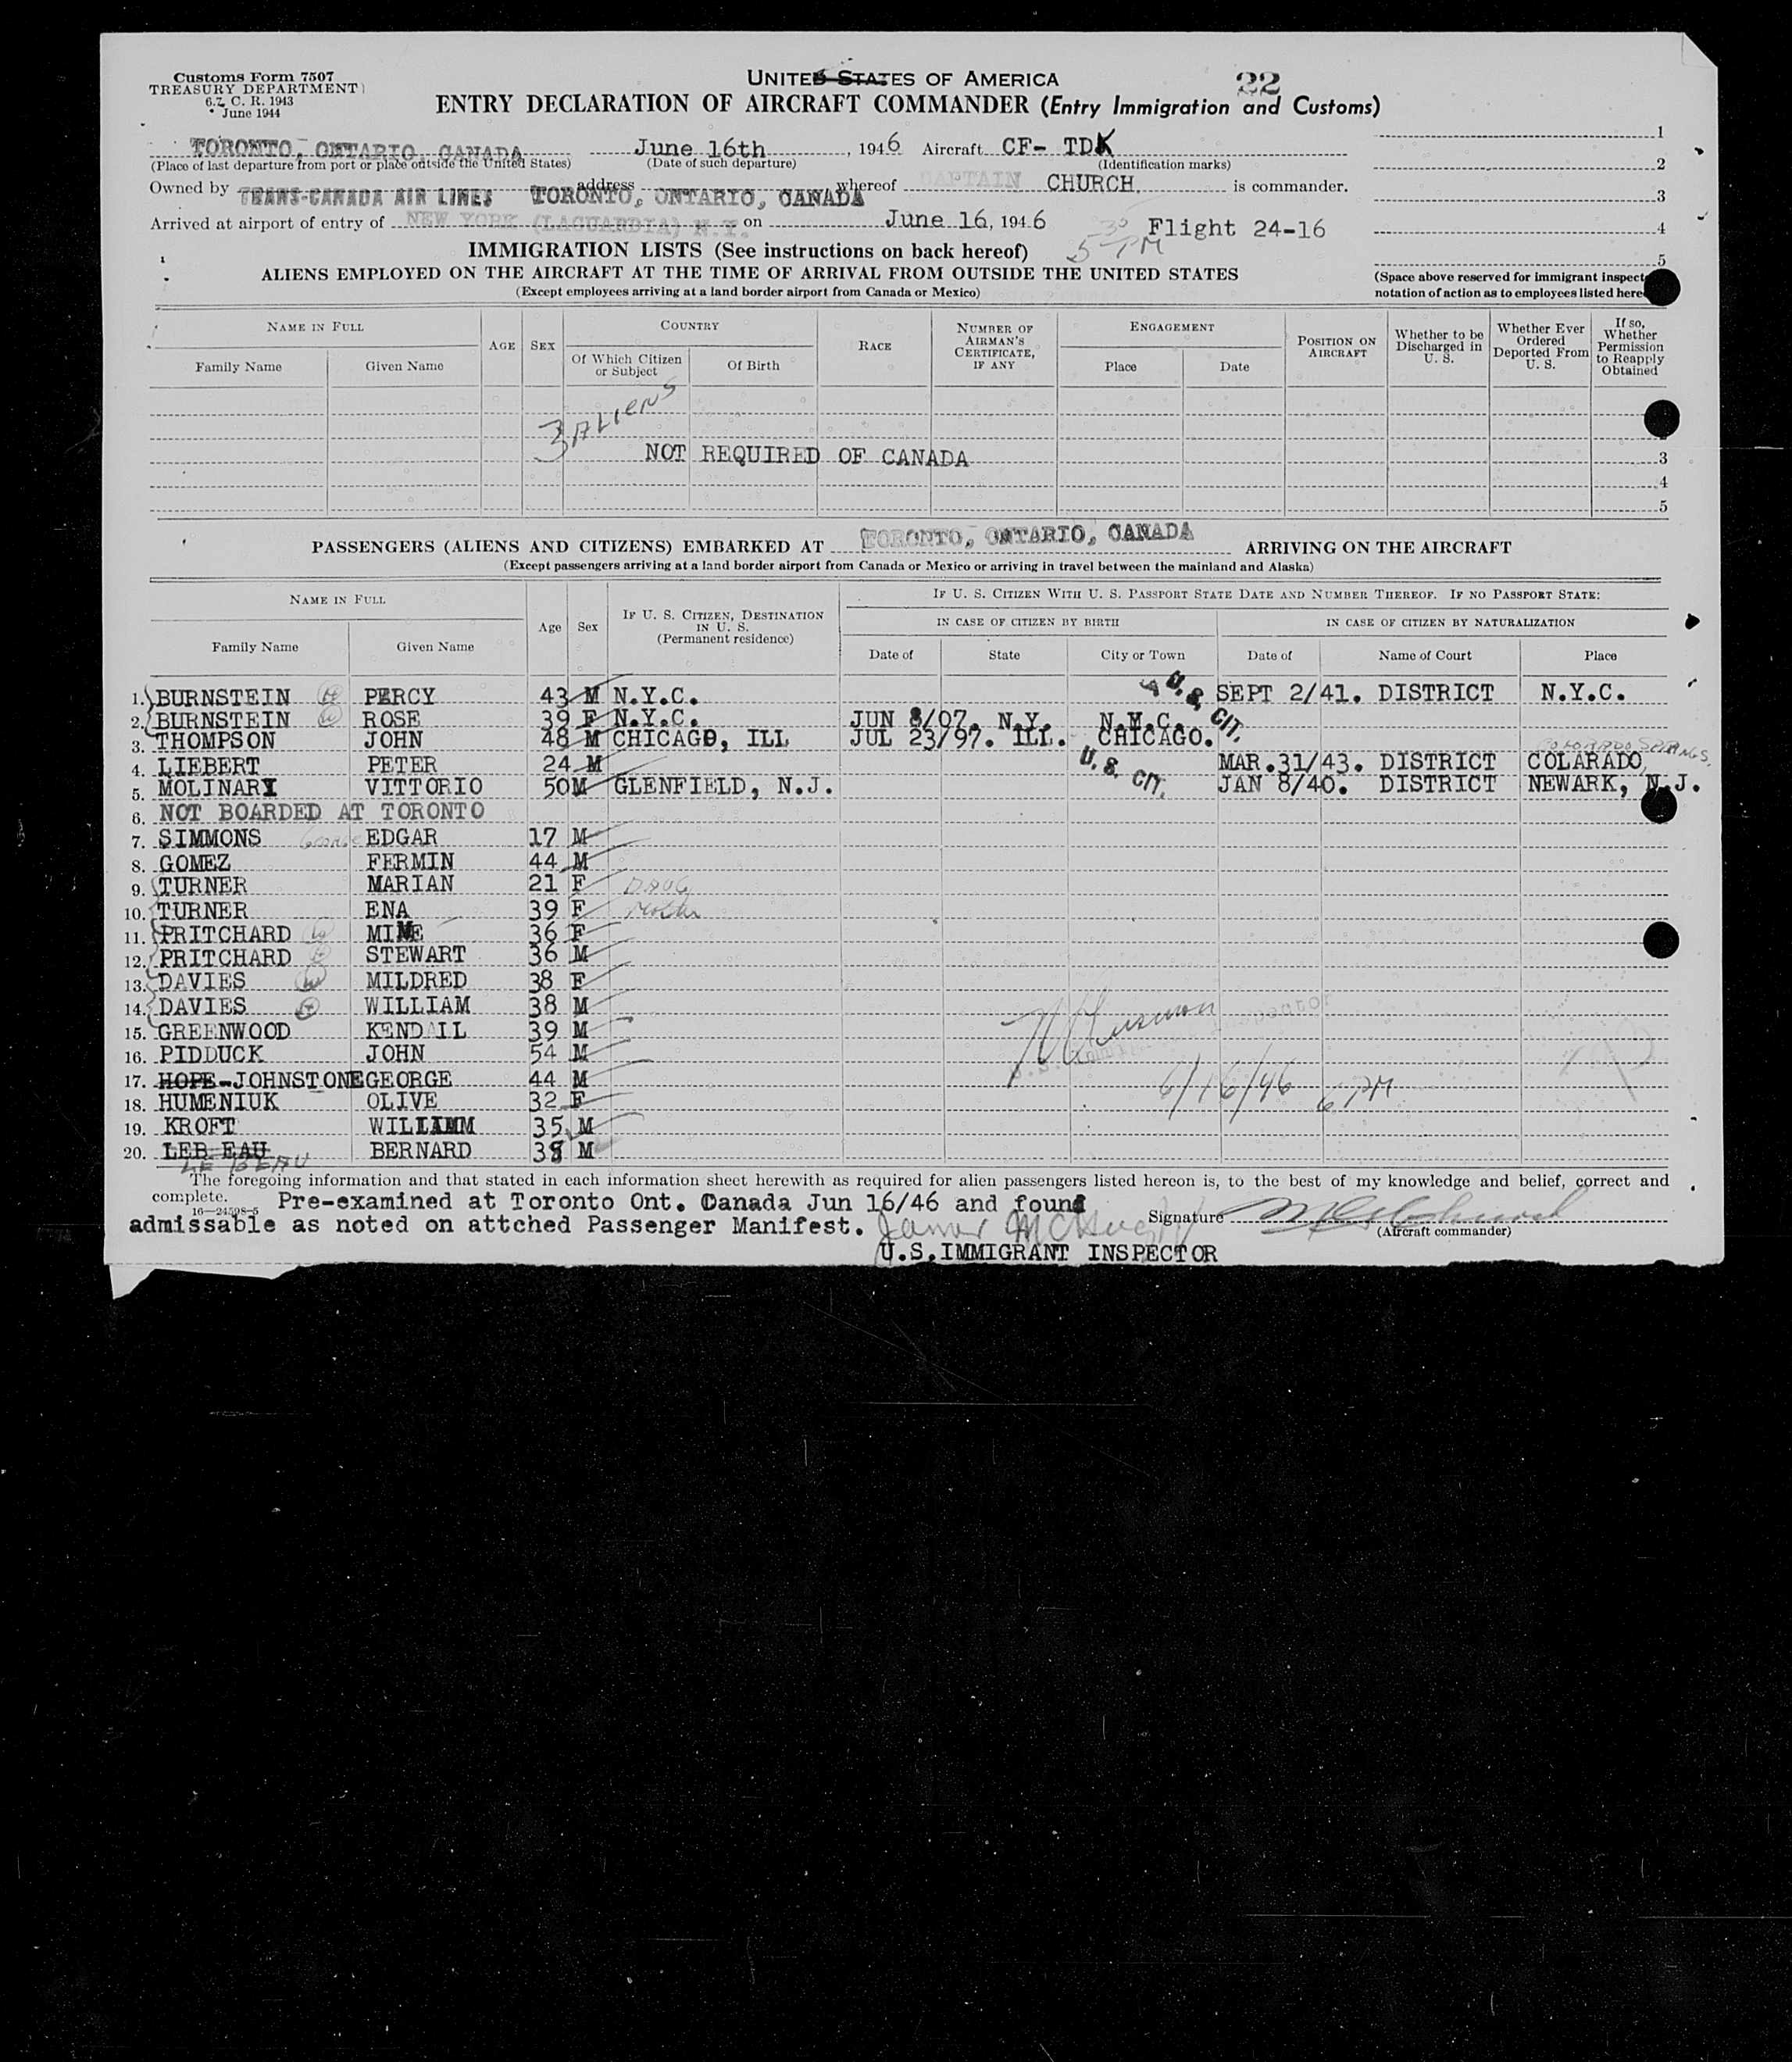 Customs Form 7507
TREASURY DEPARTMENT
6.7, C. R. 1943
June 1944
22
UNITED STATES OF AMERICA
ENTRY DECLARATION OF AIRCRAFT COMMANDER (Entry Immigration and Customs)
TORONTO, ONTARIO, CANADA June 16th, 1946 Aircraft CF- TDK
(Place of last departure from port or place outside the United States) (Date of such departure) (Identification marks)
Owned by TRANS-CANADA AIR LINES address TORONTO, ONTARIO, CANADA whereof CAPTAIN CHURCH. is commander.
Arrived at airport of entry of NEW YORK (LAGUARDIA) N.Y. on June 16, 1946 Flight 24-16
5 30 PM
1
2
3
4
5
IMMIGRATION LISTS (See instructions on back hereof)
ALIENS EMPLOYED ON THE AIRCRAFT AT THE TIME OF ARRIVAL FROM OUTSIDE THE UNITED STATES
(Except employees arriving at a land border airport from Canada or Mexico)
(Space above reserved for immigrant
notation of action as to employees listed
NAME IN FULL AGE SEX COUNTRY RACE NUMBER OF AIRMAN'S CERTIFICATE, IF ANY ENGAGEMENT POSITION ON AIRCRAFT Whether to be Discharged in U. S. Whether Ever Ordered Deported From U. S. If so, Whether Permission to Reapply Obtained
Family Name Given Name Of Which Citizen or Subject Of Birth Place Date
3 ALIENS
NOT REQUIRED OF CANADA 3
4
5
PASSENGERS (ALIENS AND CITIZENS) EMBARKED AT TORONTO, ONTARIO, CANADA ARRIVING ON THE AIRCRAFT
(Except passengers arriving at a land border airport from Canada or Mexico or arriving in travel between the mainland and Alaska)
NAME IN FULL Age Sex IF U. S. CITIZEN, DESTINATION IN U. S. (Permanent residence) IF U. S. CITIZEN WITH U. S. PASSPORT STATE DATE AND NUMBER THEREOF. IF NO PASSPORT STATE:
IN CASE OF CITIZEN BY BIRTH IN CASE OF CITIZEN BY NATURALIZATION
Family Name Given Name Date of State City or Town Date of Name of Court Place
1. BURNSTEIN H PERCY 43 M N.Y.C. U.S. CIT. SEPT 2/41. DISTRICT N.Y.C.
2. BURNSTEIN W ROSE 39 F N.Y.C. JUN 8/07. N.Y. N.Y.C.
3. THOMPSON JOHN 48 M CHICAGO, ILL JUL 23/97. ILL. CHICAGO.
COLORADO SPRINGS.
4. LIEBERT PETER 24 M U.S. CIT. MAR.31/43. DISTRICT COLARADO
5. MOLINARI VITTORIO 50 M GLENFIELD, N.J. JAN 8/40. DISTRICT NEWARK, N.J.
6. NOT BOARDED AT TORONTO
7. SIMMONS George EDGAR 17 M
8. GOMEZ FERMIN 44 M
9. TURNER MARIAN 21 F DAUG
10. TURNER ENA 39 F Mother
11. PRITCHARD W 36 F
12. PRITCHARD H STEWART 36 M
13. DAVIES W MILDRED 38 F
14. DAVIES H WILLIAM 38 M
15. GREENWOOD KENDALL 39 M
16. PIDDUCK JOHN 54 M
17. HOPE-JOHNSTONE GEORGE 44 M
6/16/46 6 PM
18. HUMENIUK OLIVE 32 F
19. KROFT WILLIAM 35 M
20. LEB EAU BERNARD 38 M
LE BEAU
The foregoing information and that stated in each information sheet herewith as required for alien passengers listed hereon is, to the best of my knowledge and belief, correct and
complete.
16—24598-5
Pre-examined at Toronto Ont. Canada Jun 16/46 and found
admissable as noted on attched Passenger Manifest. James McHugh
Signature
(Aircraft commander)
U.S.IMMIGRANT INSPECTOR